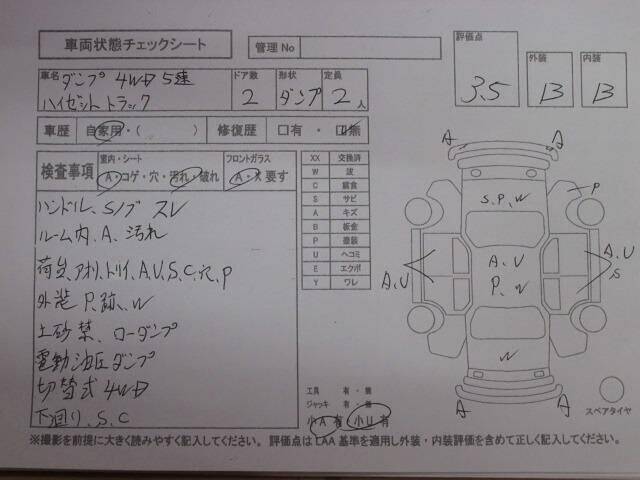 車両状態チェックシート
管理No
評価点
3.5
外装
B
内装
B
車名
ダンプ 4WD 5速
ハイゼットトラック
ドア数
2
形状
ダンプ
定員
2人
車歴 自家用・( ) 修復歴 □有・□無
検査事項
室内・シート
A・コゲ・穴・汚れ・破れ
フロントガラス
A・X 要す
ハンドル、Sノブ スレ
ルーム内、A、汚れ
荷台、アオリ、トリイ、A,U,S,C,穴,P
外装 P,跡,W
土砂禁、ローダンプ
電動油圧ダンプ
切替式4WD
下廻り、S、C
XX 交換済
W 波
C 腐食
S サビ
A キズ
B 板金
P 塗装
U ヘコミ
E エクボ
Y ワレ
A
A
S,P,W
P
A,U
A,U
P,W
A,U
S
W
A
A
工具 有・無
ジャッキ 有・無
小A有 小U有
スペアタイヤ
※撮影を前提に大きく読みやすく記入してください。 評価点はLAA基準を適用し外装・内装評価を含めて正しく記入してください。